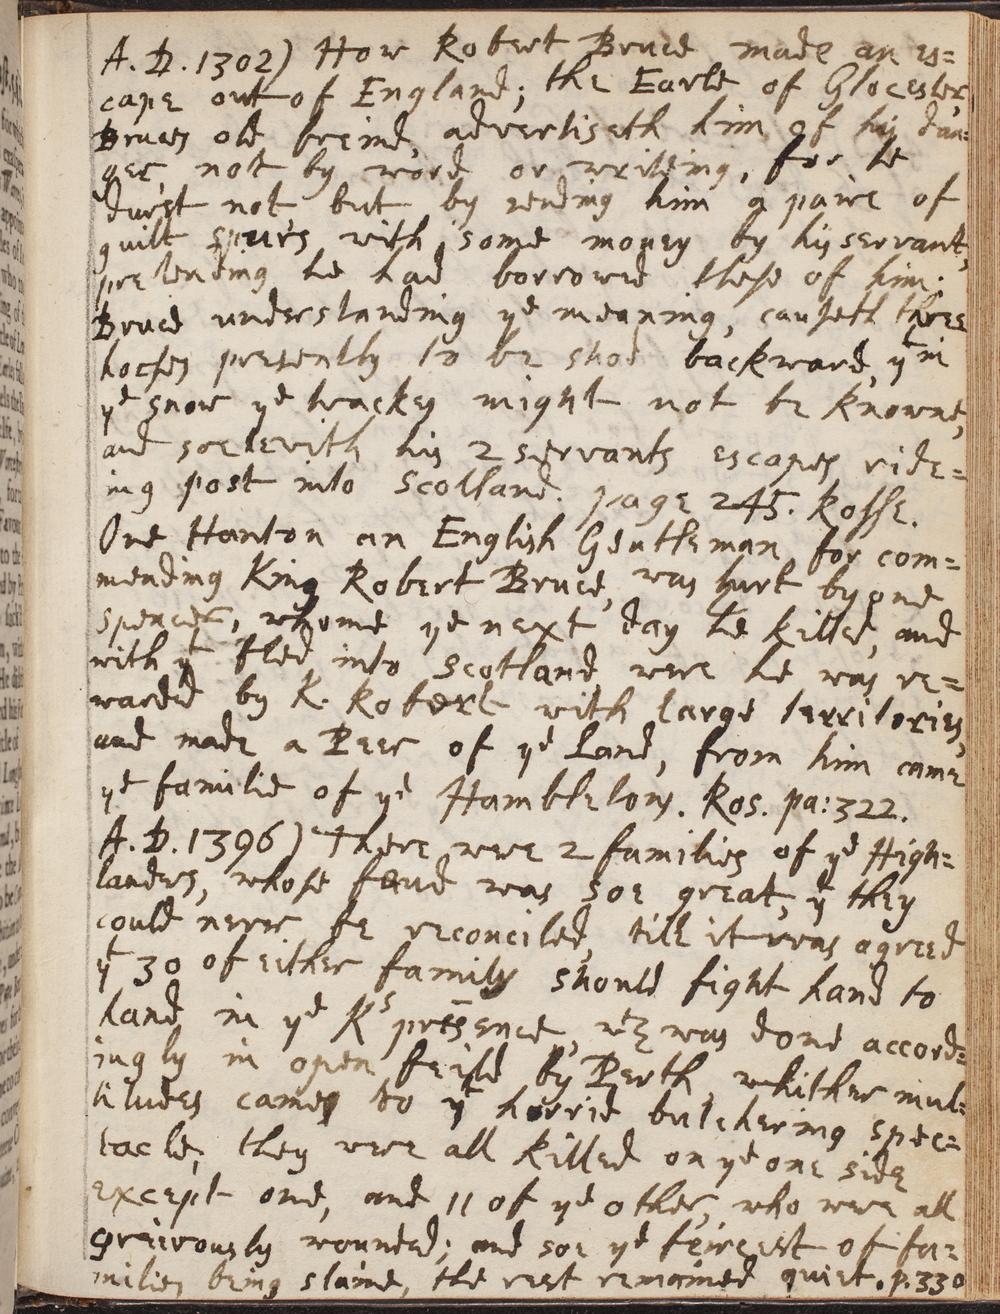 A.D. 1302) How Robert Bruce made an es=
cape out of England; the Earle of Glocester,
Bruces old freind, advertiseth him of his dan=
ger, not by word or writing, for he
durst not, but by sending him a paire of
guilt spurs with some money by his servant,
pretending he had borrowed these of him:
Bruce understanding ye meaning, causeth three
horses presently to be shod backward, yt in
ye snow ye trackes might not be knowne,
and soe with his 2 servants escapes ride=
ing post into Scotland. page 245. Rosse.
One Hanton an English Gentleman, for com=
mending King Robert Bruce, was hurt by one
Spencer, whome ye next day he killed, and
with yt fled into Scotland were he was re=
warded by K. Robert with large territories,
and made a Peer of ye Land, from him came
ye familie of ye Hambletons. Ros. pa: 322.
A.D. 1396) There were 2 families of ye High=
landers, whose feud was soe great, yt they
could never be reconciled, till it was agreed
yt 30 of either family should fight hand to
hand in ye Ks presence, wch was done accord=
ingly in open feild by Perth, whither mul=
titudes cames to yt horrid butchering spec=
tacle, they were all killed on ye one side
except one, and 11 of ye other, who were all
greivously wounded; and soe ye feircest of fa=
milies being slaine, the rest remained quiet. p. 330